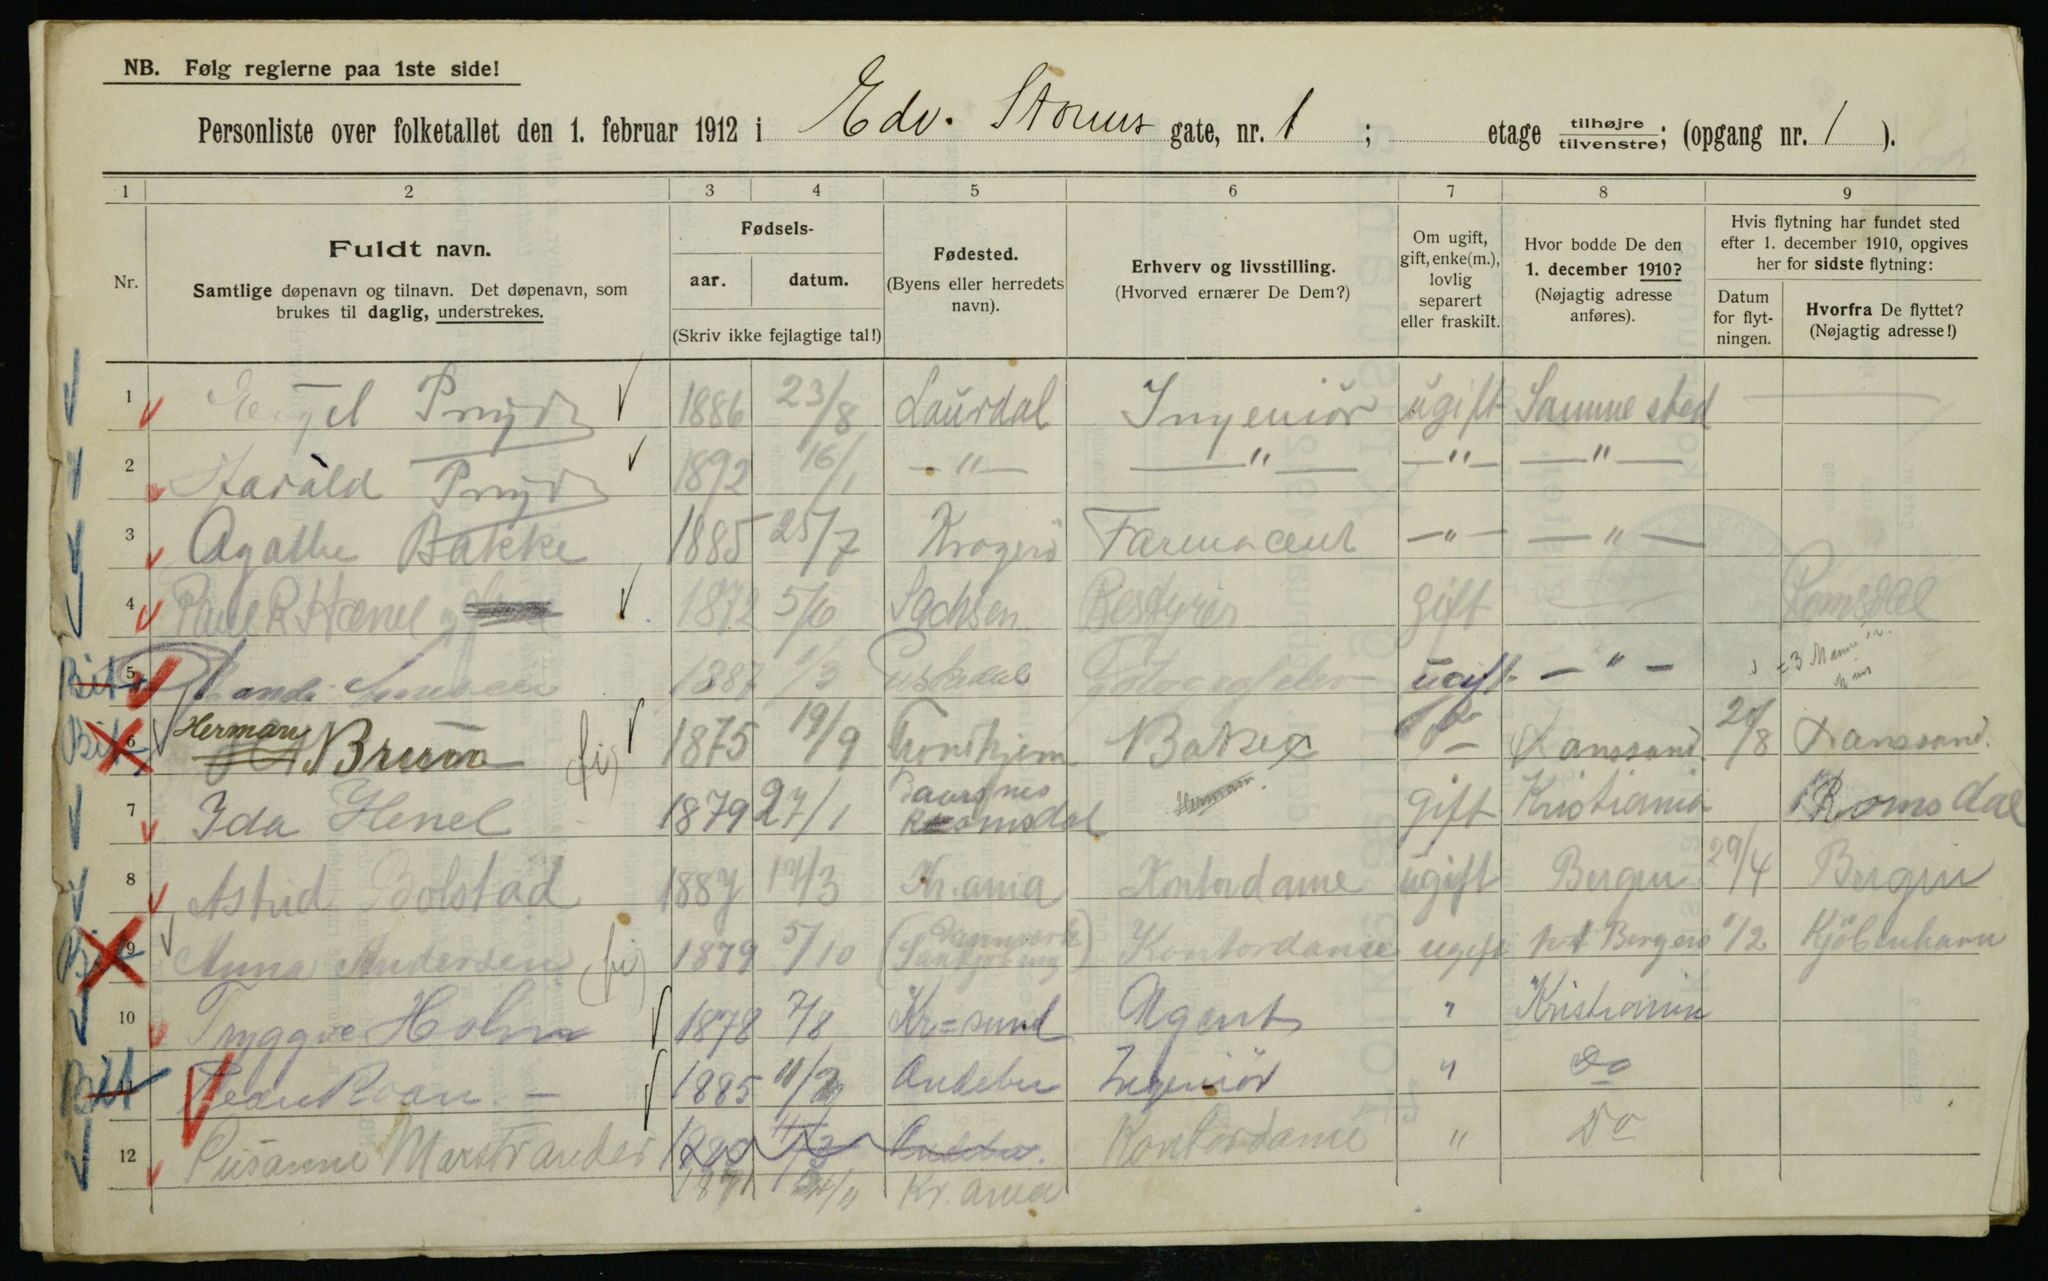 NB. Følg reglerne paa 1ste side!
Personliste over folketallet den 1. februar 1912 i Edv. Storms gate, nr. 1 ; etage tilhøjre tilvenstre; (opgang nr. 1 ).
1 2 3 4 5 6 7 8 9
Nr.
Fuldt navn.
Samtlige døpenavn og tilnavn. Det døpenavn, som
brukes til daglig, understrekes.
Fødsels-
aar. datum.
(Skriv ikke fejlagtige tal!)
Fødested.
(Byens eller herredets
navn).
Erhverv og livsstilling.
(Hvorved ernærer De Dem?)
Om ugift,
gift, enke(m.),
lovlig
separert
eller fraskilt.
Hvor bodde De den
1. december 1910?
(Nøjagtig adresse
anføres).
Hvis flytning har fundet sted
efter 1. december 1910, opgives
her for sidste flytning:
Datum
for flyt-
ningen.
Hvorfra De flyttet?
(Nøjagtig adresse!)
1 Prydz 1886 23/8 Laurdal Ingeniör ugift Samme sted
2 Harald Prydz 1892 16/1 — " — — " — — " — — " —
3 Agathe Bakke 1885 25/7 Kragerö Farmaceut — " — — " —
4 Paul R. Hænel 1872 5/6 Sachsen Bestyrer gift Romsdal
5 1887 ugift — " — = 3
6 Herman Bruun 1875 19/9 Trondhjem Bakser Do Hanssand 8 Hanssand.
Herman
7 Ida Henel 1879 27/1 Romsdal gift Kristiania Romsdal
8 Astrid Bolstad 1887 17/3 Kr.ania Kontordame ugift Bergen 29/4 Bergen
9 Anna Andersen 1879 5/10 (Danmark) Kontordame ugift Bergen 1/2 Kjöbenhavn
10 Tryggve Holm 1878 7/8 Kr=sund Agent " Kristiania
11 Roan — 1885 11/2 Andebu Ingeniör " Do
12 Susanne Marstrander Andebu. Kontordame " Do
1871 Kr.ania